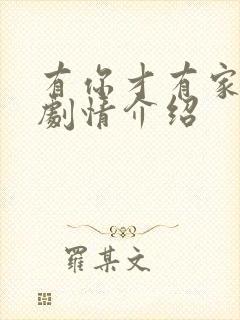 有你才有家
劇情介紹
羅某文